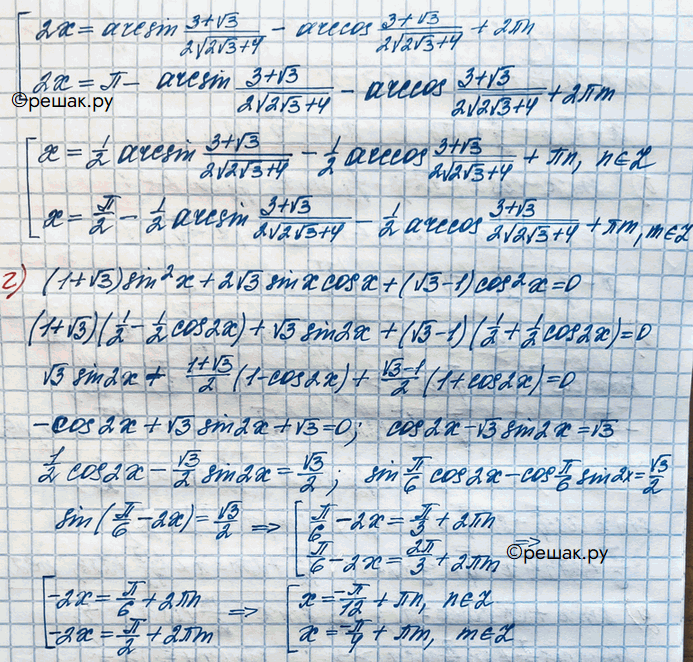 2x = arcsin (3+√3)/(2√(2√3+4)) - arccos (3+√3)/(2√(2√3+4)) + 2πn
2x = π - arcsin (3+√3)/(2√(2√3+4)) - arccos (3+√3)/(2√(2√3+4)) + 2πm
©решак.ру
x = 1/2 arcsin (3+√3)/(2√(2√3+4)) - 1/2 arccos (3+√3)/(2√(2√3+4)) + πn, n∈Z
x = π/2 - 1/2 arcsin (3+√3)/(2√(2√3+4)) - 1/2 arccos (3+√3)/(2√(2√3+4)) + πm, m∈Z
г) (1+√3) sin²x + 2√3 sinx cosx + (√3-1) cos²x = 0
(1+√3)(1/2 - 1/2 cos2x) + √3 sin2x + (√3-1)(1/2 + 1/2 cos2x) = 0
√3 sin2x + (1+√3)/2 (1-cos2x) + (√3-1)/2 (1+cos2x) = 0
-cos2x + √3 sin2x + √3 = 0; cos2x - √3 sin2x = √3
1/2 cos2x - √3/2 sin2x = √3/2; sin π/6 cos2x - cos π/6 sin2x = √3/2
sin(π/6 - 2x) = √3/2 => [ π/6 - 2x = π/3 + 2πn
π/6 - 2x = 2π/3 + 2πm =>
©решак.ру
[ -2x = π/6 + 2πn => [ x = -π/12 + πn, n∈Z
-2x = π/2 + 2πm x = -π/4 + πm, m∈Z